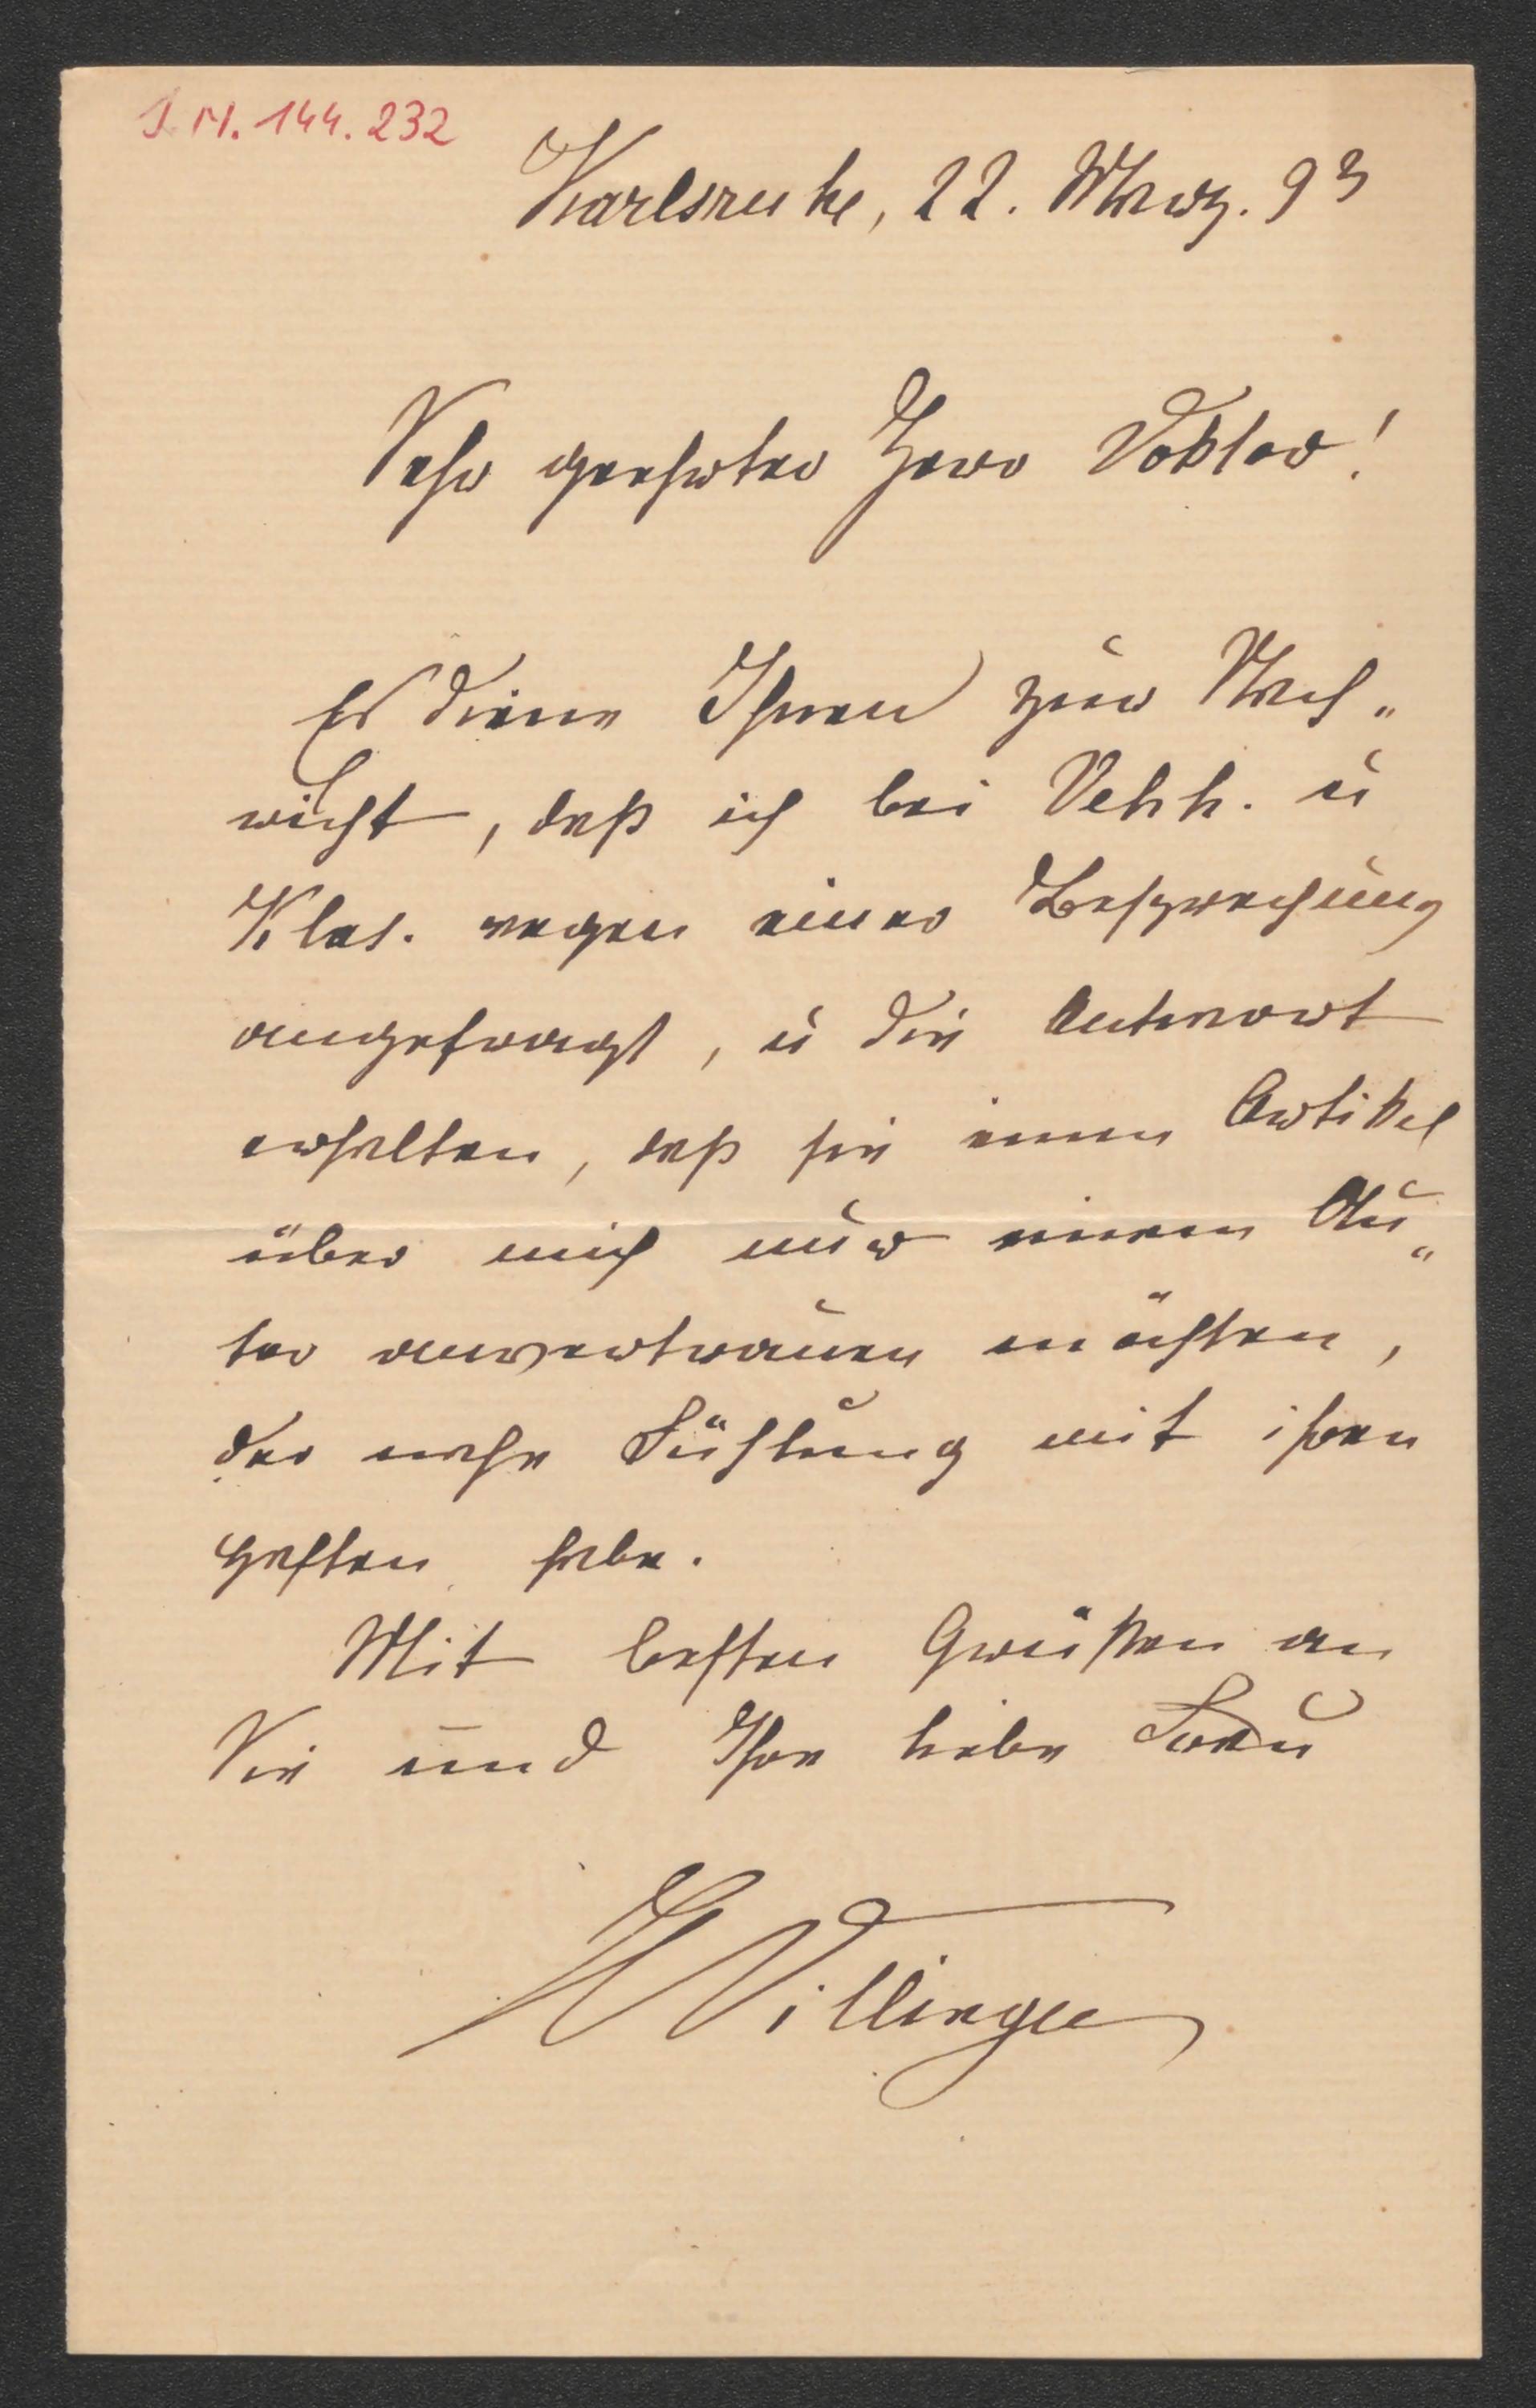 J. N. 144.232
Karlsruhe, 22. März. 93
Sehr geehrter Herr Doktor!
Es diene Ihnen zur Nach„
richt, daß ich bei Velh. u
Klas. wegen einer Besprechung
angefragt, u die Antwort
erhalten, daß sie einen Artikel
über mich nur einem Au„
tor anvertrauen möchten,
der nahe Fühlung mit ihren
Heften habe.
Mit besten Grüßen an
Sie und Ihre liebe Frau
HVillinger